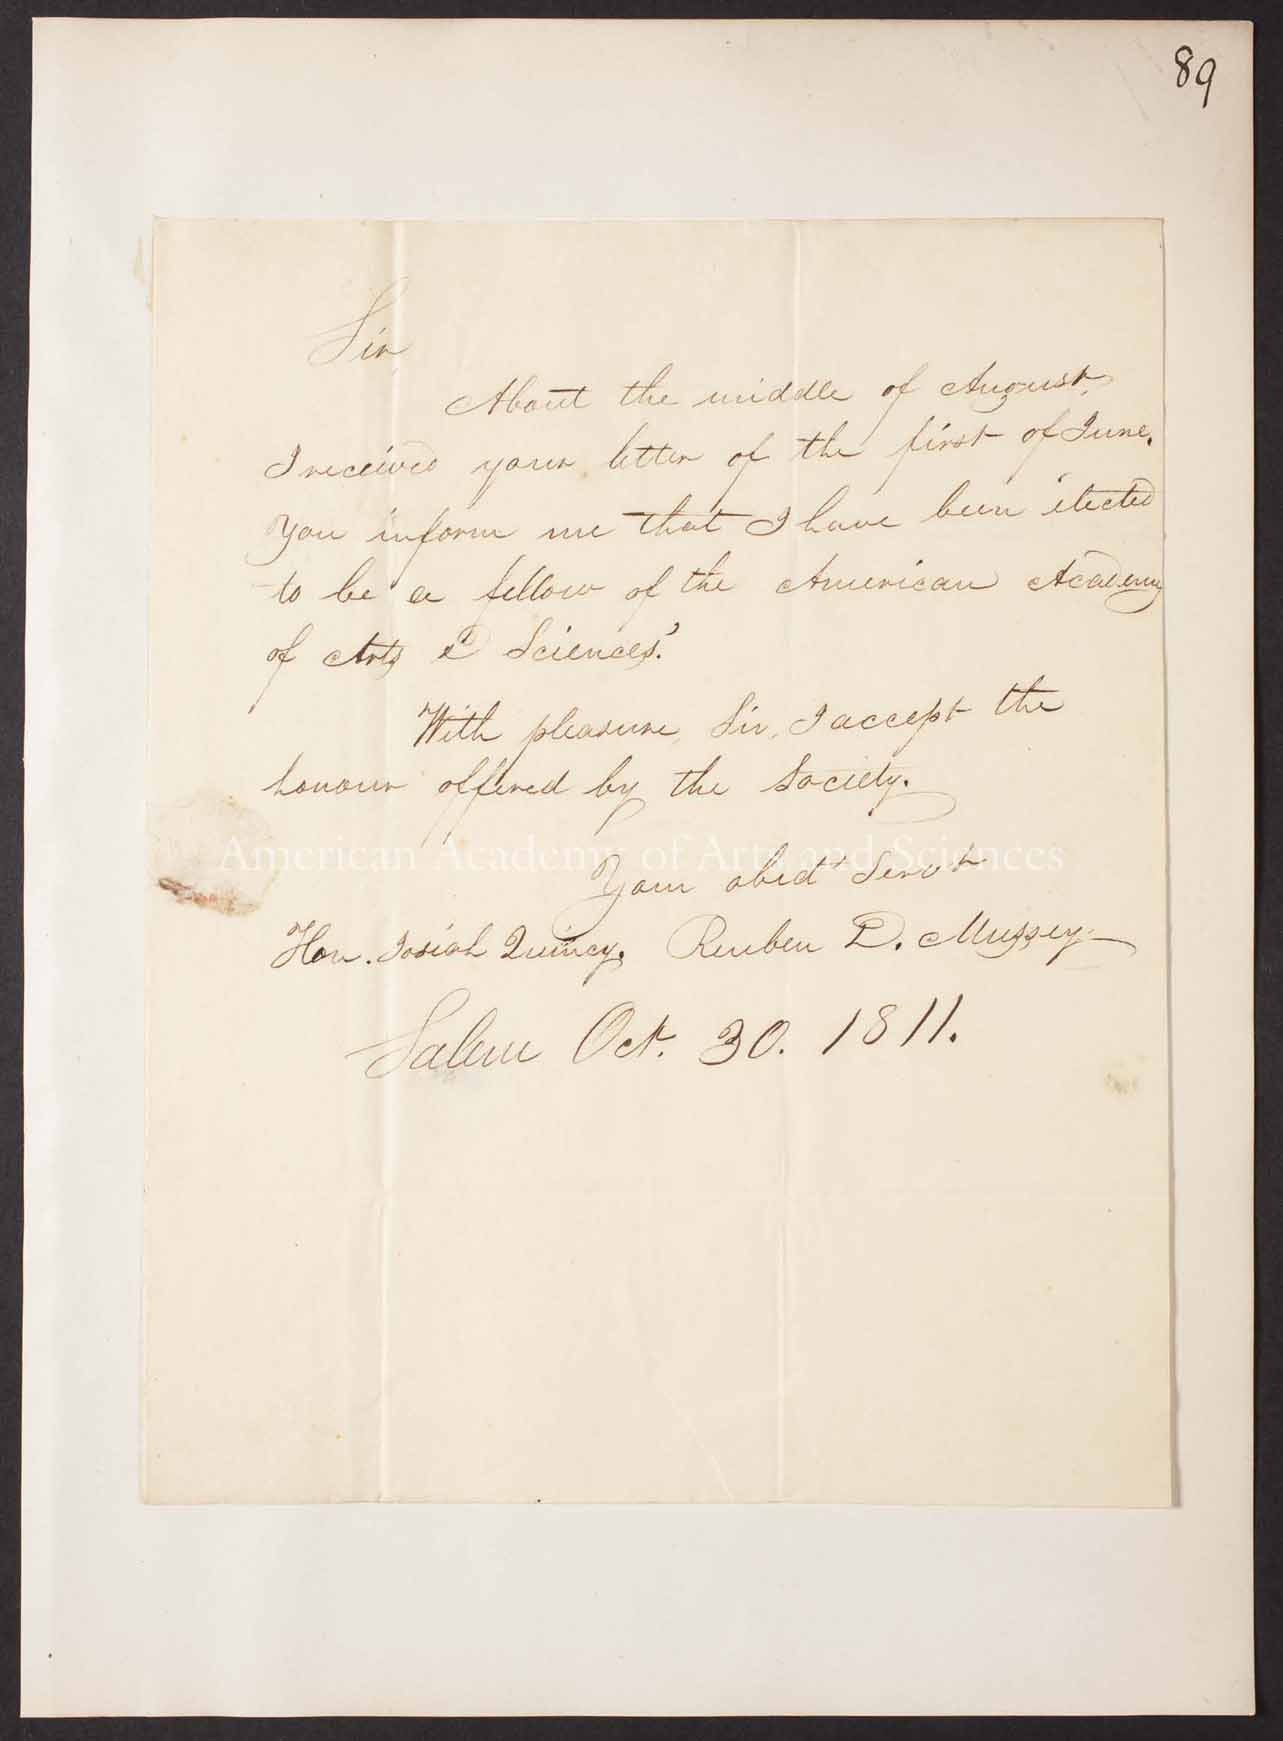 89
Sir,
About the middle of August,
I received your letter of the first of June.
You inform me that I have been 'elected
to be a fellow of the American Academy
of Arts & Sciences.'
With pleasure, Sir, I accept the
honour offered by the Society.
American Academy of Arts and Sciences
Your obedt Servt
Hon. Josiah Quincy. Reuben D. Mussey.
Salem Oct. 30. 1811.